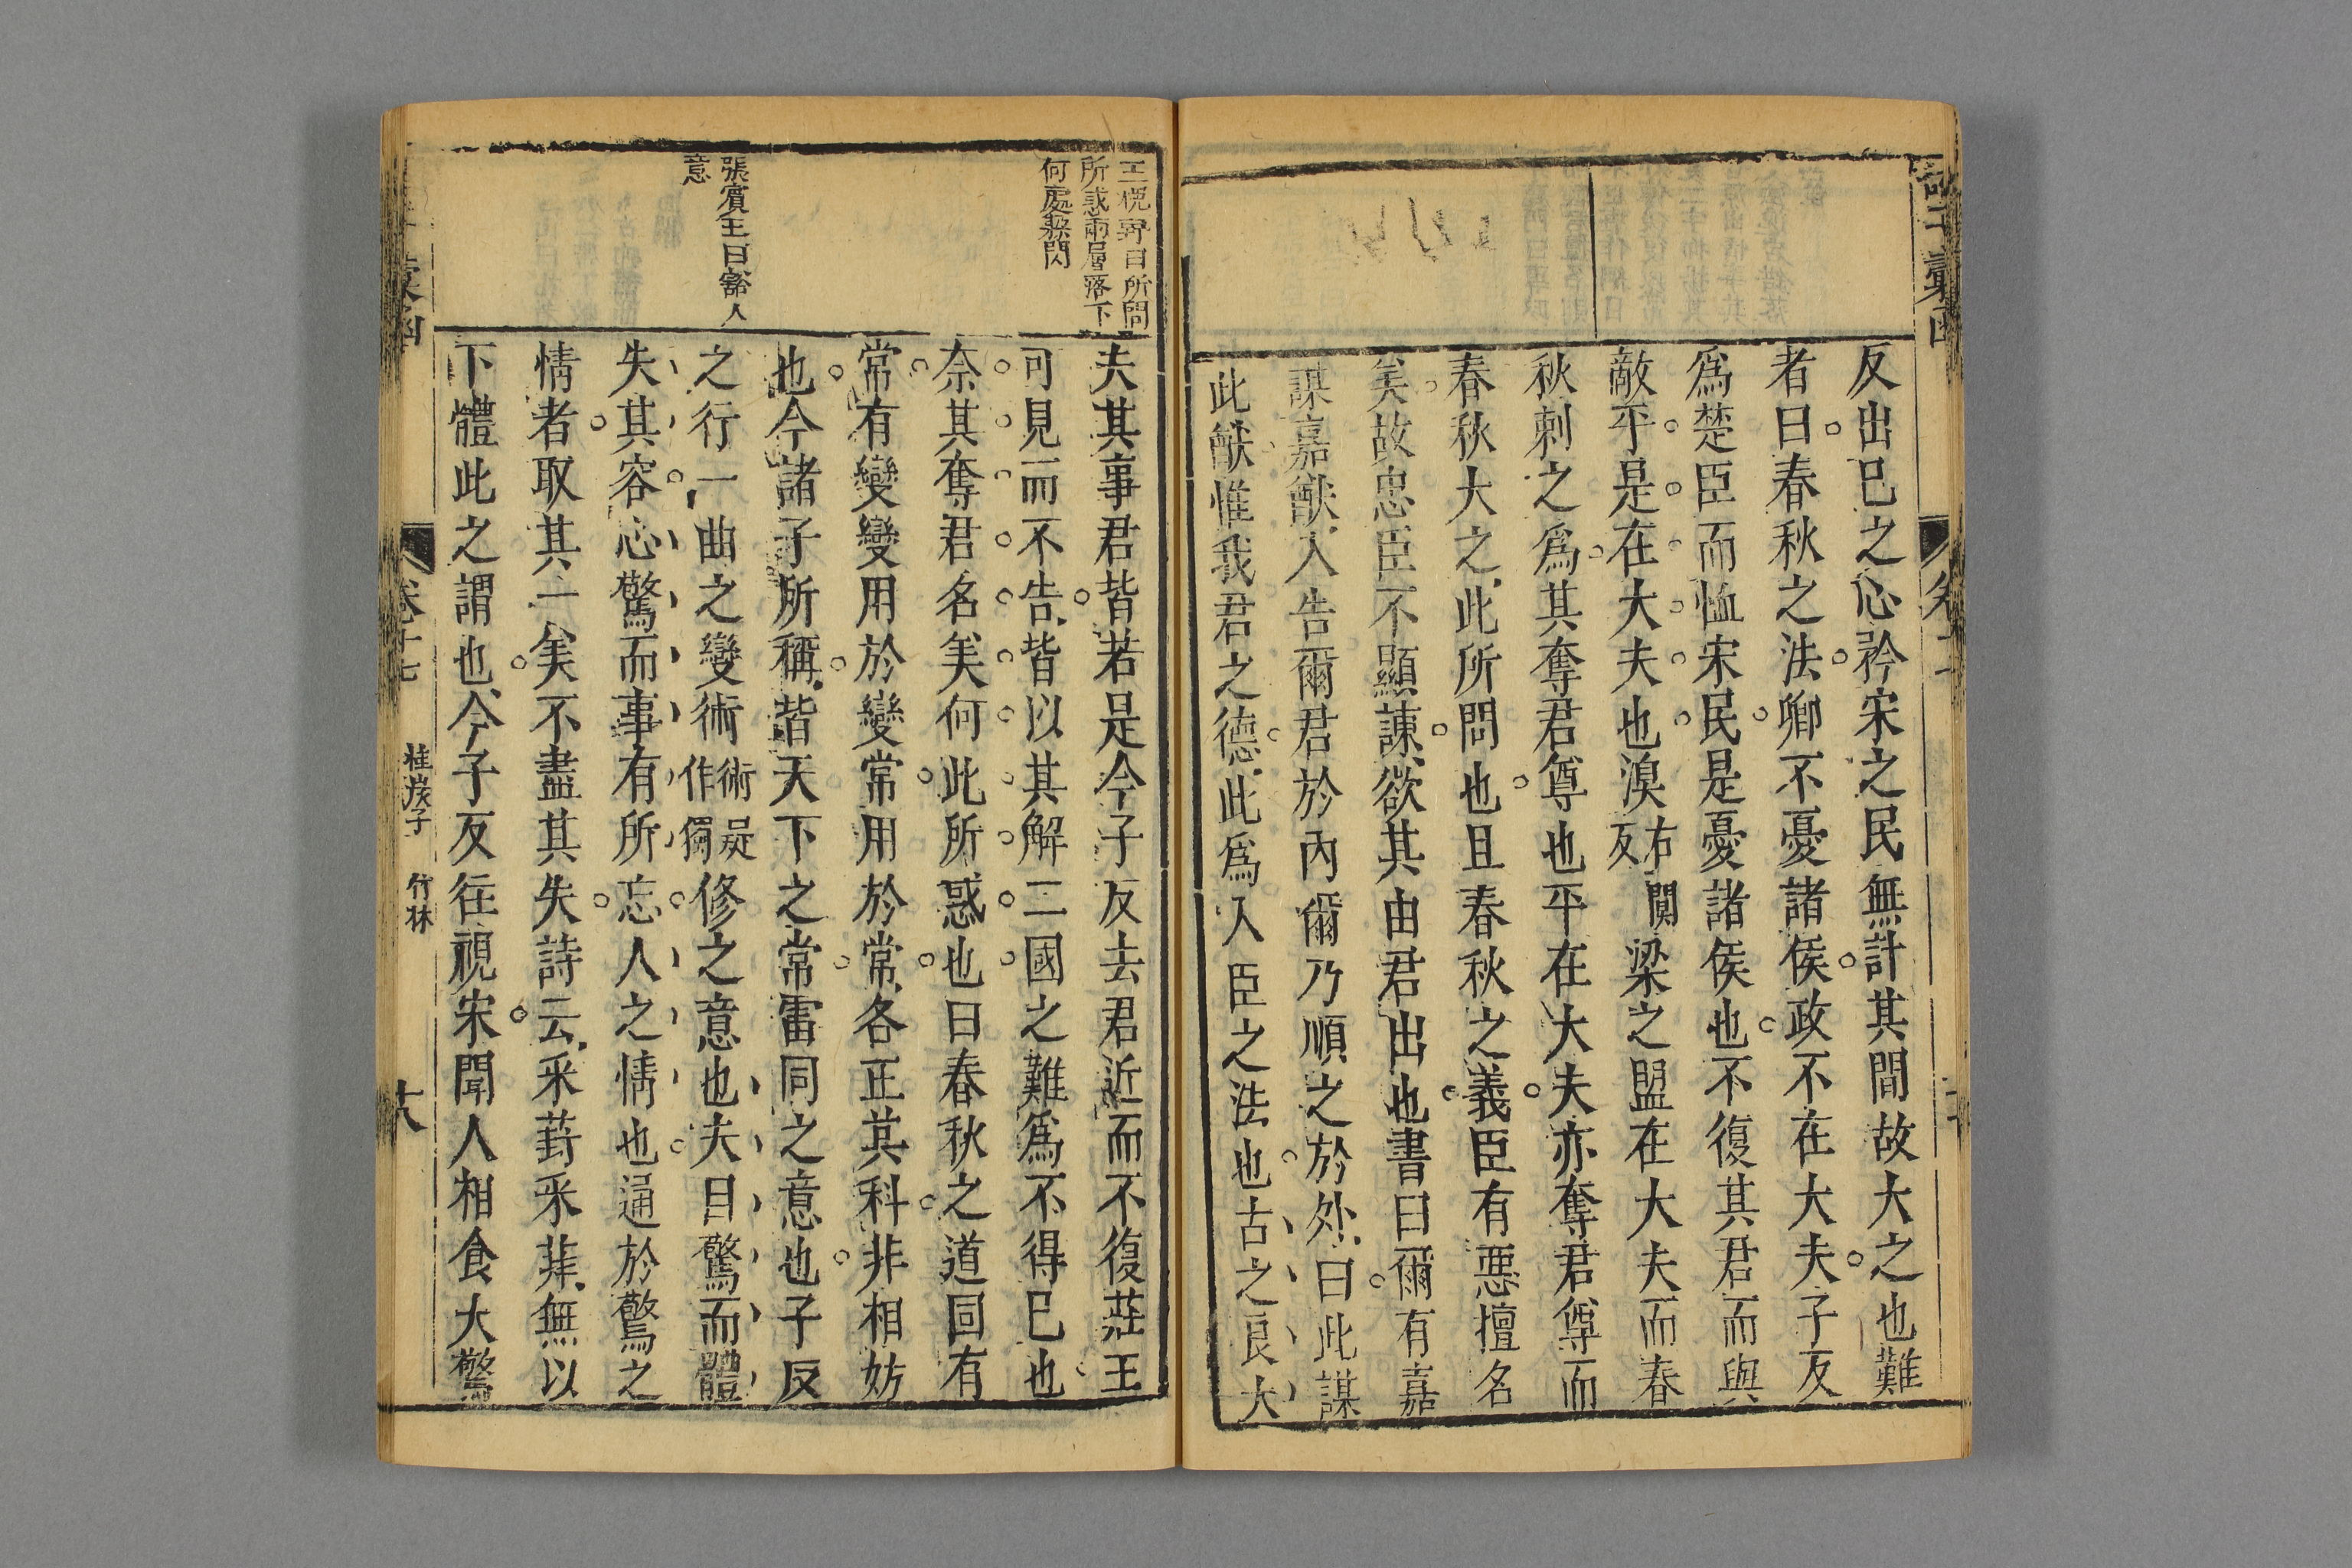 反出己之心矜宋之民無計其間故大之也難
者曰春秋之法卿不憂諸侯政不在大夫子反
爲楚臣而恤宋民是憂諸侯也不復其君而與
敵平是在大夫也溴右闃反梁之盟在大夫而春
秋刺之爲其奪君尊也平在大夫亦奪君尊而
春秋大之此所問也且春秋之義臣有惡擅名
美故忠臣不顯諫欲其由君出也書曰爾有嘉
謀嘉猷入告爾君於內爾乃順之於外曰此謀
此猷惟我君之德此爲人臣之法也古之良大
王槐野曰所問
所惑兩層落下
何處躱閃
夫其事君皆若是今子反去君近而不復莊王
可見而不告皆以其解二國之難爲不得已也
奈其奪君名美何此所惑也曰春秋之道固有
常有變變用於變常用於常各正其科非相妨
也今諸子所稱皆天下之常雷同之意也子反
張賓王曰豁人
意
之行一曲之變術術疑作獨修之意也夫目驚而體
失其容心驚而事有所忘人之情也通於驚之
情者取其一美不盡其失詩云采葑采菲無以
下體此之謂也今子反往視宋聞人相食大驚
卷十七
桂巖子 竹林
十八